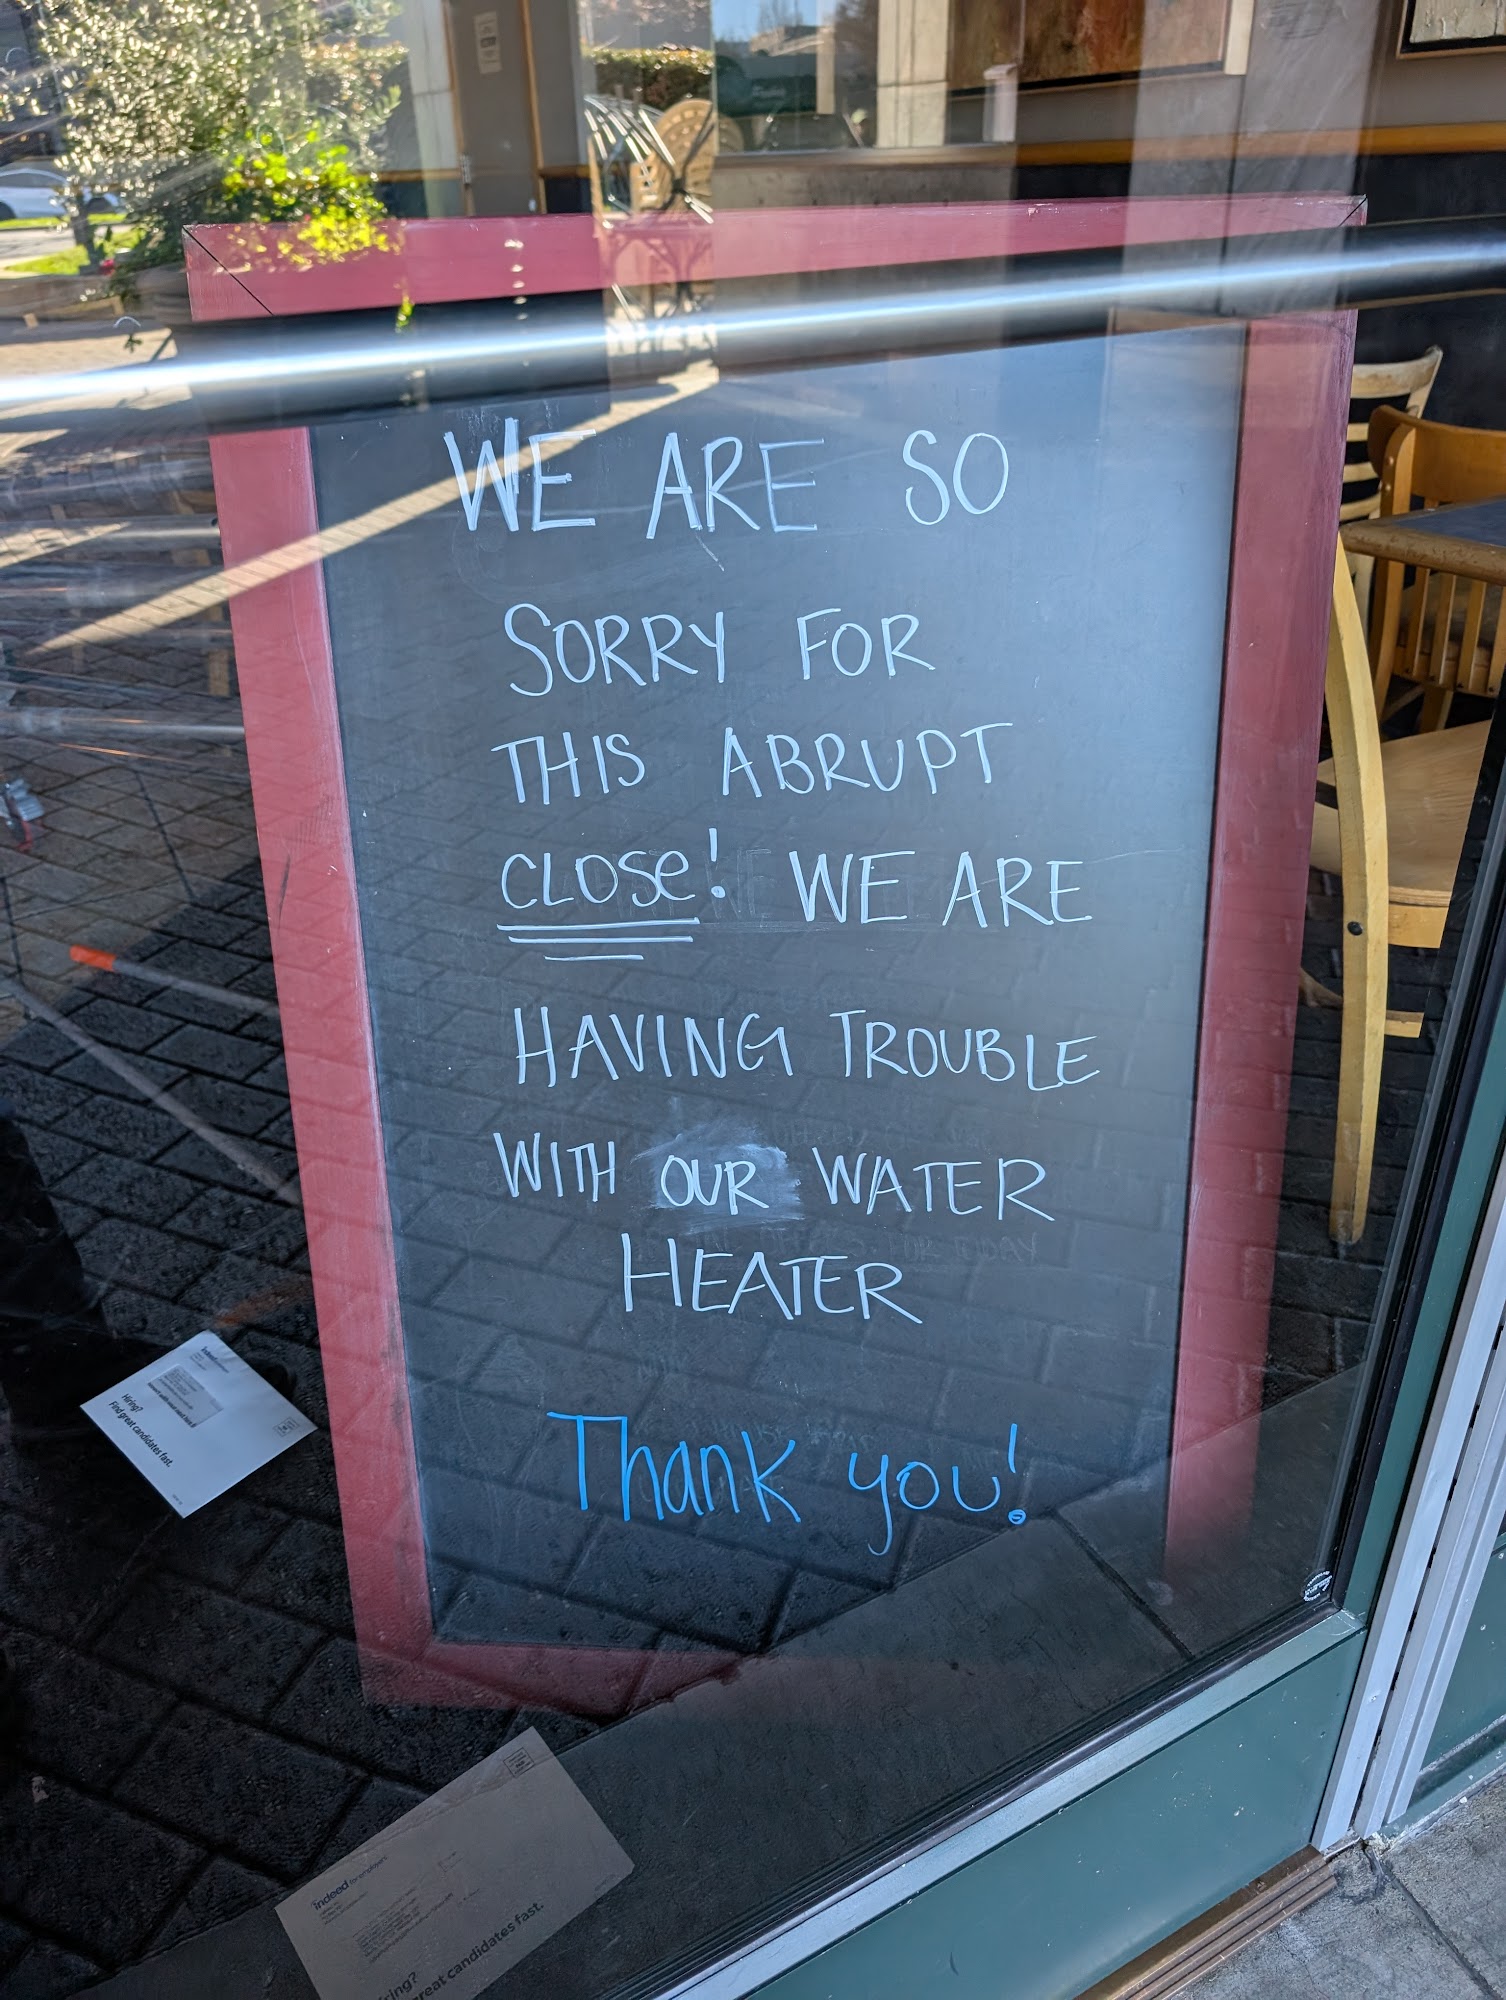 WE ARE SO
SORRY FOR
THIS ABRUPT
CLOSE! WE ARE
HAVING TROUBLE
WITH OUR WATER
HEATER
Thank you!
indeed
Hiring?
Find great candidates fast.
indeed for employers
great candidates fast.